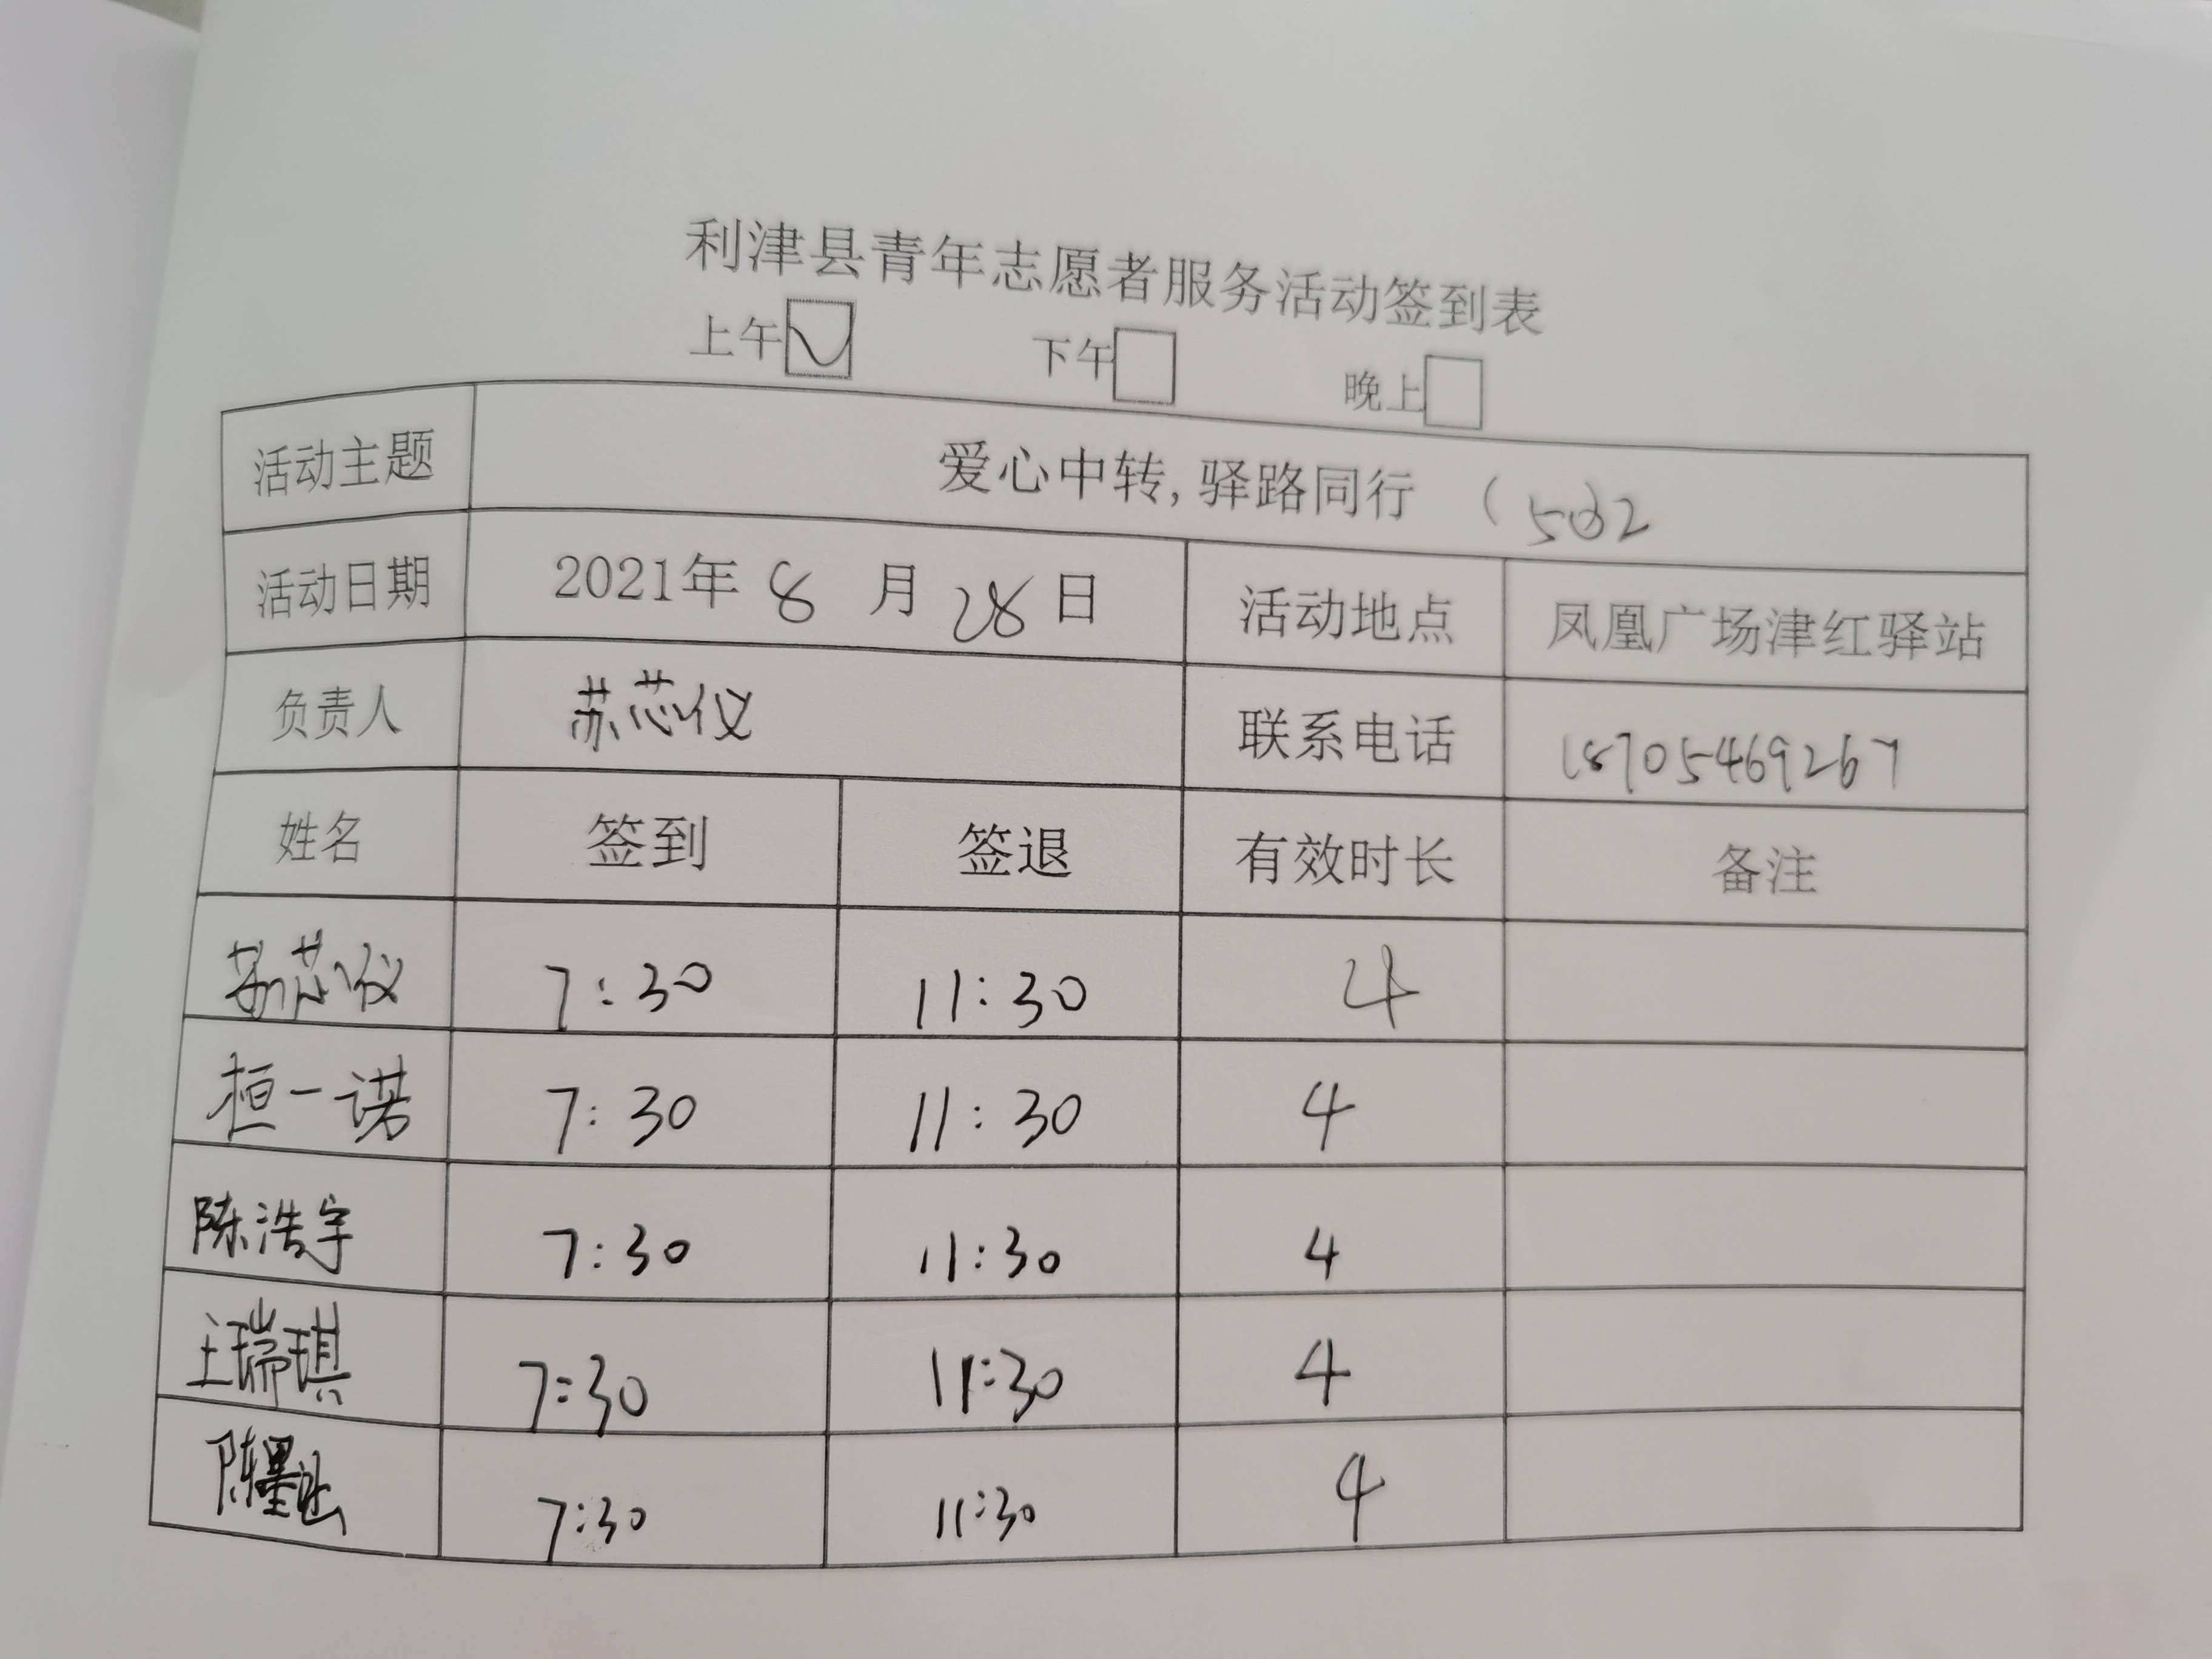 利津县青年志愿者服务活动签到表
上午 下午 晚上
活动主题 爱心中转,驿路同行
活动日期 2021年 8 月 28 日 活动地点 凤凰广场津红驿站
负责人 苏芯仪 联系电话 18705469267
姓名 签到 签退 有效时长 备注
苏芯仪 7:30 11:30 4
桓一诺 7:30 11:30 4
陈浩宇 7:30 11:30 4
王瑞琪 7:30 11:30 4
陈墨 7:30 11:30 4